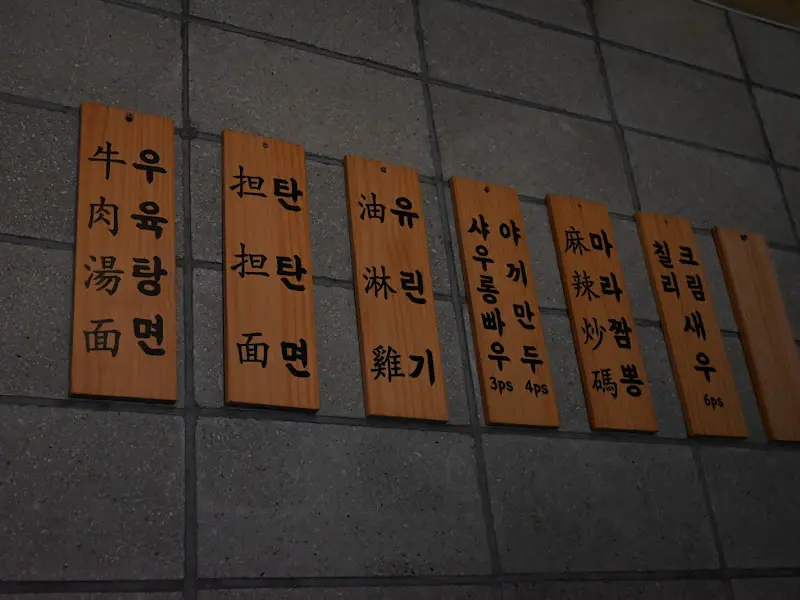 牛肉湯面
우육탕면
担担面
탄탄면
油淋雞
유린기
샤우롱빠우 3ps
야끼만두 4ps
麻辣炒碼
마라짬뽕
칠리
크림새우 6ps